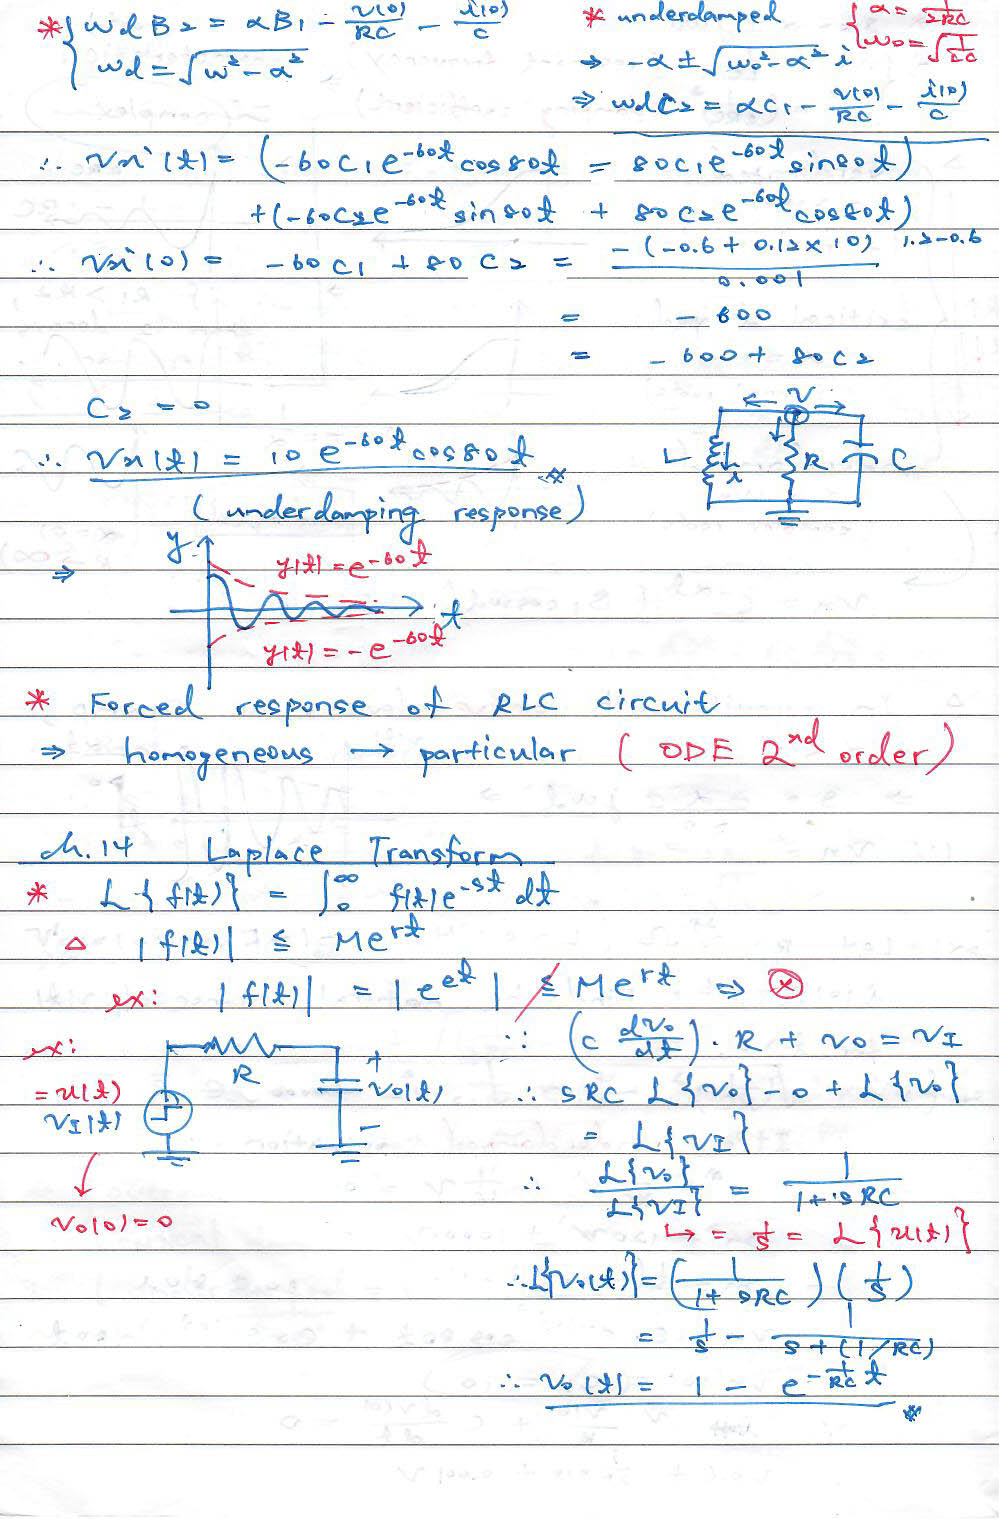 * { ωd B₂ = αB₁ - v(0)/RC - i(0)/C
ωd = √(ω² - α²)
* underdamped { α = 1/2RC
ω₀ = √(1/LC)
⇒ -α ± √(ω₀² - α²) i
⇒ ωd C₂ = αC₁ - v(0)/RC - i(0)/C
∴ Vn'(t) = (-60C₁e^-60t cos80t = 80C₁e^-60t sin80t)
+(-60C₂e^-60t sin80t + 80C₂e^-60t cos80t)
∴ Vn'(0) = -60C₁ + 80C₂ = -(-0.6 + 0.12×10)/0.001 1.2-0.6
= -600
= -600 + 80C₂
C₂ = 0
∴ Vn(t) = 10e^-60t cos80t
(underdamping response)
V
L i R C
⇒ y
y(t) = e^-60t
t
y(t) = -e^-60t
* Forced response of RLC circuit
⇒ homogeneous → particular (ODE 2nd order)
ch.14 Laplace Transform
* L{f(t)} = ∫₀^∞ f(t)e^-st dt
△ |f(t)| ≦ Me^rt
ex: |f(t)| = |e^e^t| ≦ Me^rt ⇒ ⊗
ex:
= u(t)
VI(t)
R
+
Vo(t)
-
Vo(0) = 0
∵ (C dVo/dt)·R + Vo = VI
∴ SRC L{Vo} - 0 + L{Vo}
= L{VI}
∴ L{Vo}/L{VI} = 1/(1+SRC)
↳ = 1/s = L{u(t)}
∴ L{Vo(t)} = (1/(1+SRC))(1/s)
= 1/s - 1/(s+(1/RC))
∴ Vo(t) = 1 - e^-(1/RC)t